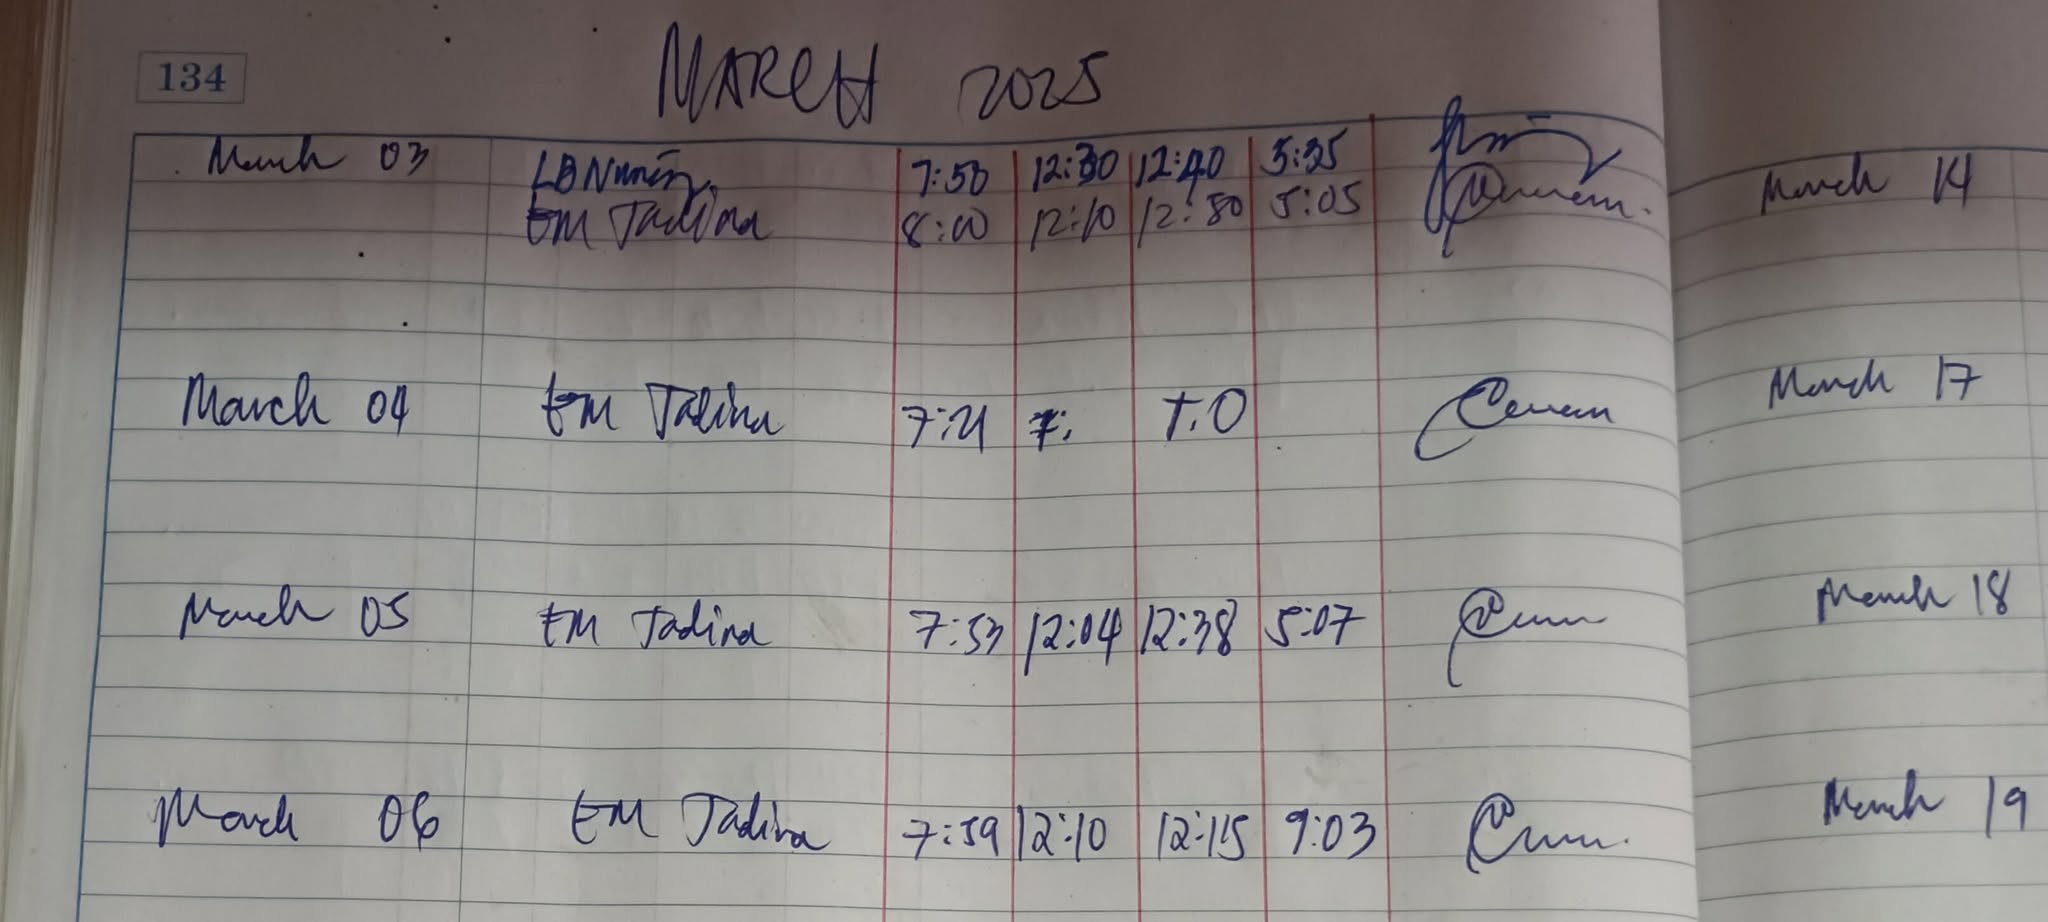 134
MARCH 2025
March 03 LBNuñez 7:50 12:30 12:40 5:35
EM Tadina 8:00 12:10 12:50 5:05
March 04 EM Tadina 7:21 7: T.O
March 05 EM Tadina 7:53 12:04 12:38 5:07
March 06 EM Tadina 7:59 12:10 12:15 9:03
March 14
March 17
March 18
March 19